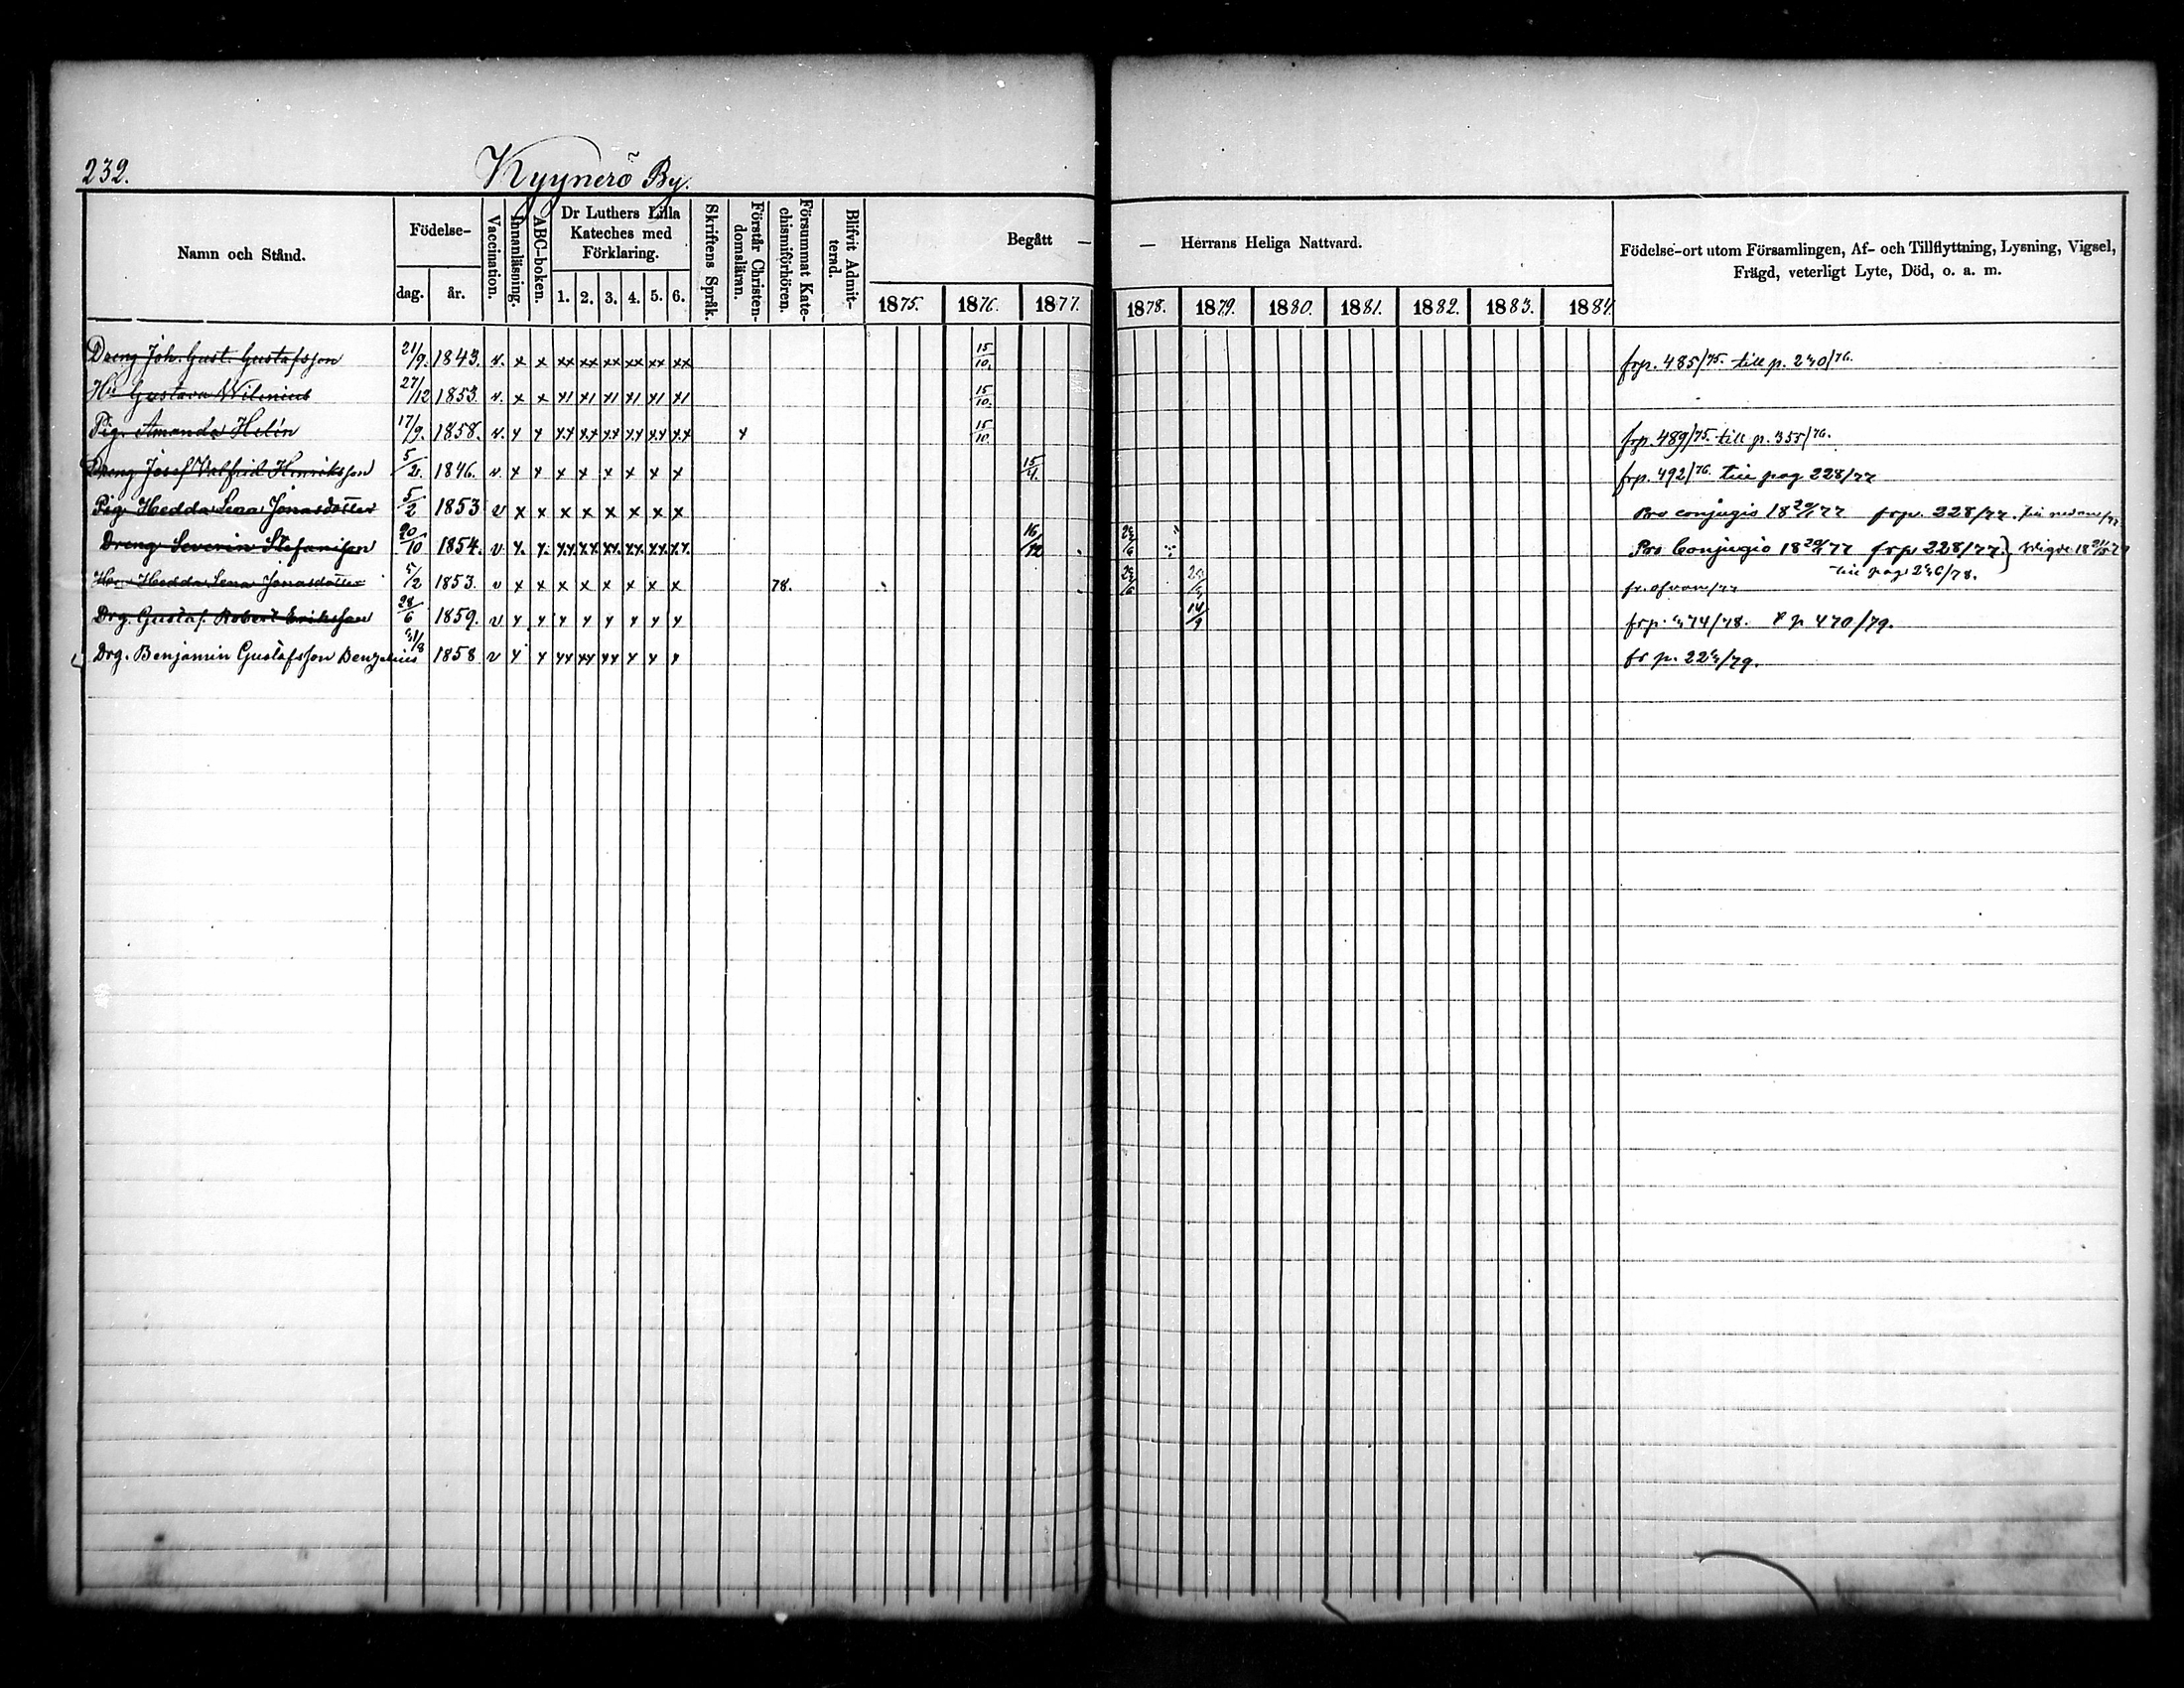 232. Kyynerö By.
Namn och Stånd. Födelse- dag. år. Vaccination. Innanläsning. ABC-boken. Dr Luthers Lilla Kateches med Förklaring. 1. 2. 3. 4. 5. 6. Skriftens Språk. Förstår Christendomsläran. Försummat Katechismiförhören. Blifvit Admitterad. Begått — — Herrans Heliga Nattvard. 1875. 1876. 1877. 1878. 1879. 1880. 1881. 1882. 1883. 1884. Födelse-ort utom Församlingen, Af- och Tillflyttning, Lysning, Vigsel, Frägd, veterligt Lyte, Död, o. a. m.
Dreng Joh. Gust. Gustafsson 21/9. 1843. v. x x xx xx xx xx xx xx 15/10. frp. 485/75. till p. 240/76.
Hu Gustava Wilenius 27/12 1853. v. x x x1 x1 x1 x1 x1 x1 15/10.
Pig. Amanda Helén 17/9. 1858. v. x x xx xx xx xx xx xx x 15/10 frp. 489/75. till p. 355/76.
Dreng Josef Walfrid Henriksson 5/2. 1846. v. x x x x x x x x 15/4. frp. 492/76. till pag 228/77
Pig. Hedda Lena Jonasdotter 5/2 1853 v x x x x x x x x Pro conjugio 18 20/ 77 frp. 228/77. till nedan/77
Dreng Severin Stefanisson 20/10 1854. v x x xx xx xx xx xx xx 16/12 Pro Conjugio 18 20/ 77 frp 228/77. Wigde 18
till pag 246/78.
Hedda Lena Jonasdotter 5/2 1853. v x x x x x x x x 78. fr. ofvan/77
Drg. Gustaf Robert Eriksson 28/6 1859. v x x x x x x x x 14/9 frp. 474/78. p 470/79.
Drg. Benjamin Gustafsson Benzelius 1858 v x x xx xx xx x x x fr p. /79.